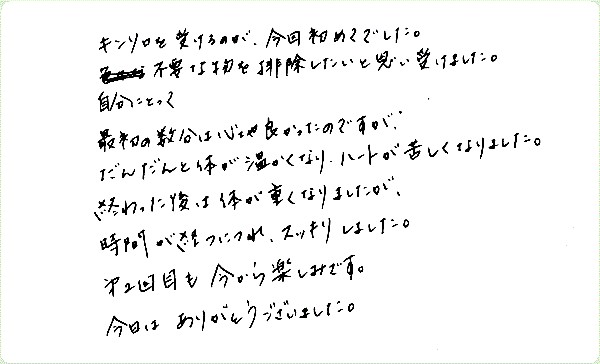 キンソロを受けるのが、今回初めてでした。
不要な物を排除したいと思い受けました。
自分にとって
最初の数分は心地良かったのですが、
だんだんと体が温かくなり、ハートが苦しくなりました。
終わった後は体が重くなりましたが、
時間が経つにつれ、スッキリしました。
第2回目も今から楽しみです。
今日はありがとうございました。